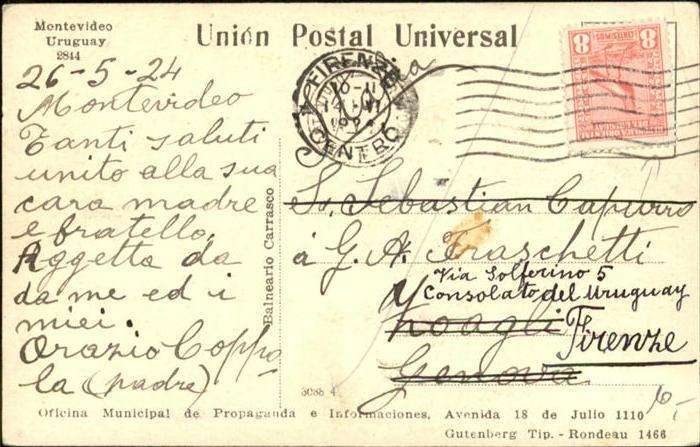 Montevideo
Uruguay
2844
Unión Postal Universal
8 8
FIRENZE
CENTRO
26-5-24
Montevideo
Tanti saluti
unito alla sua
cara madre
e fratello.
Aggetta da
da me ed i
miei.
Orazio Coppo
la (padre)
Balneario Carrasco
Sr. Sebastian Capurro
á G. A. Fraschetti
Via Solferino 5
Consolato del Uruguay
Zoagli Firenze
Genova
3038 4
Oficina Municipal de Propaganda e Informaciones, Avenida 18 de Julio 1110
Gutenberg Tip. - Rondeau 1466